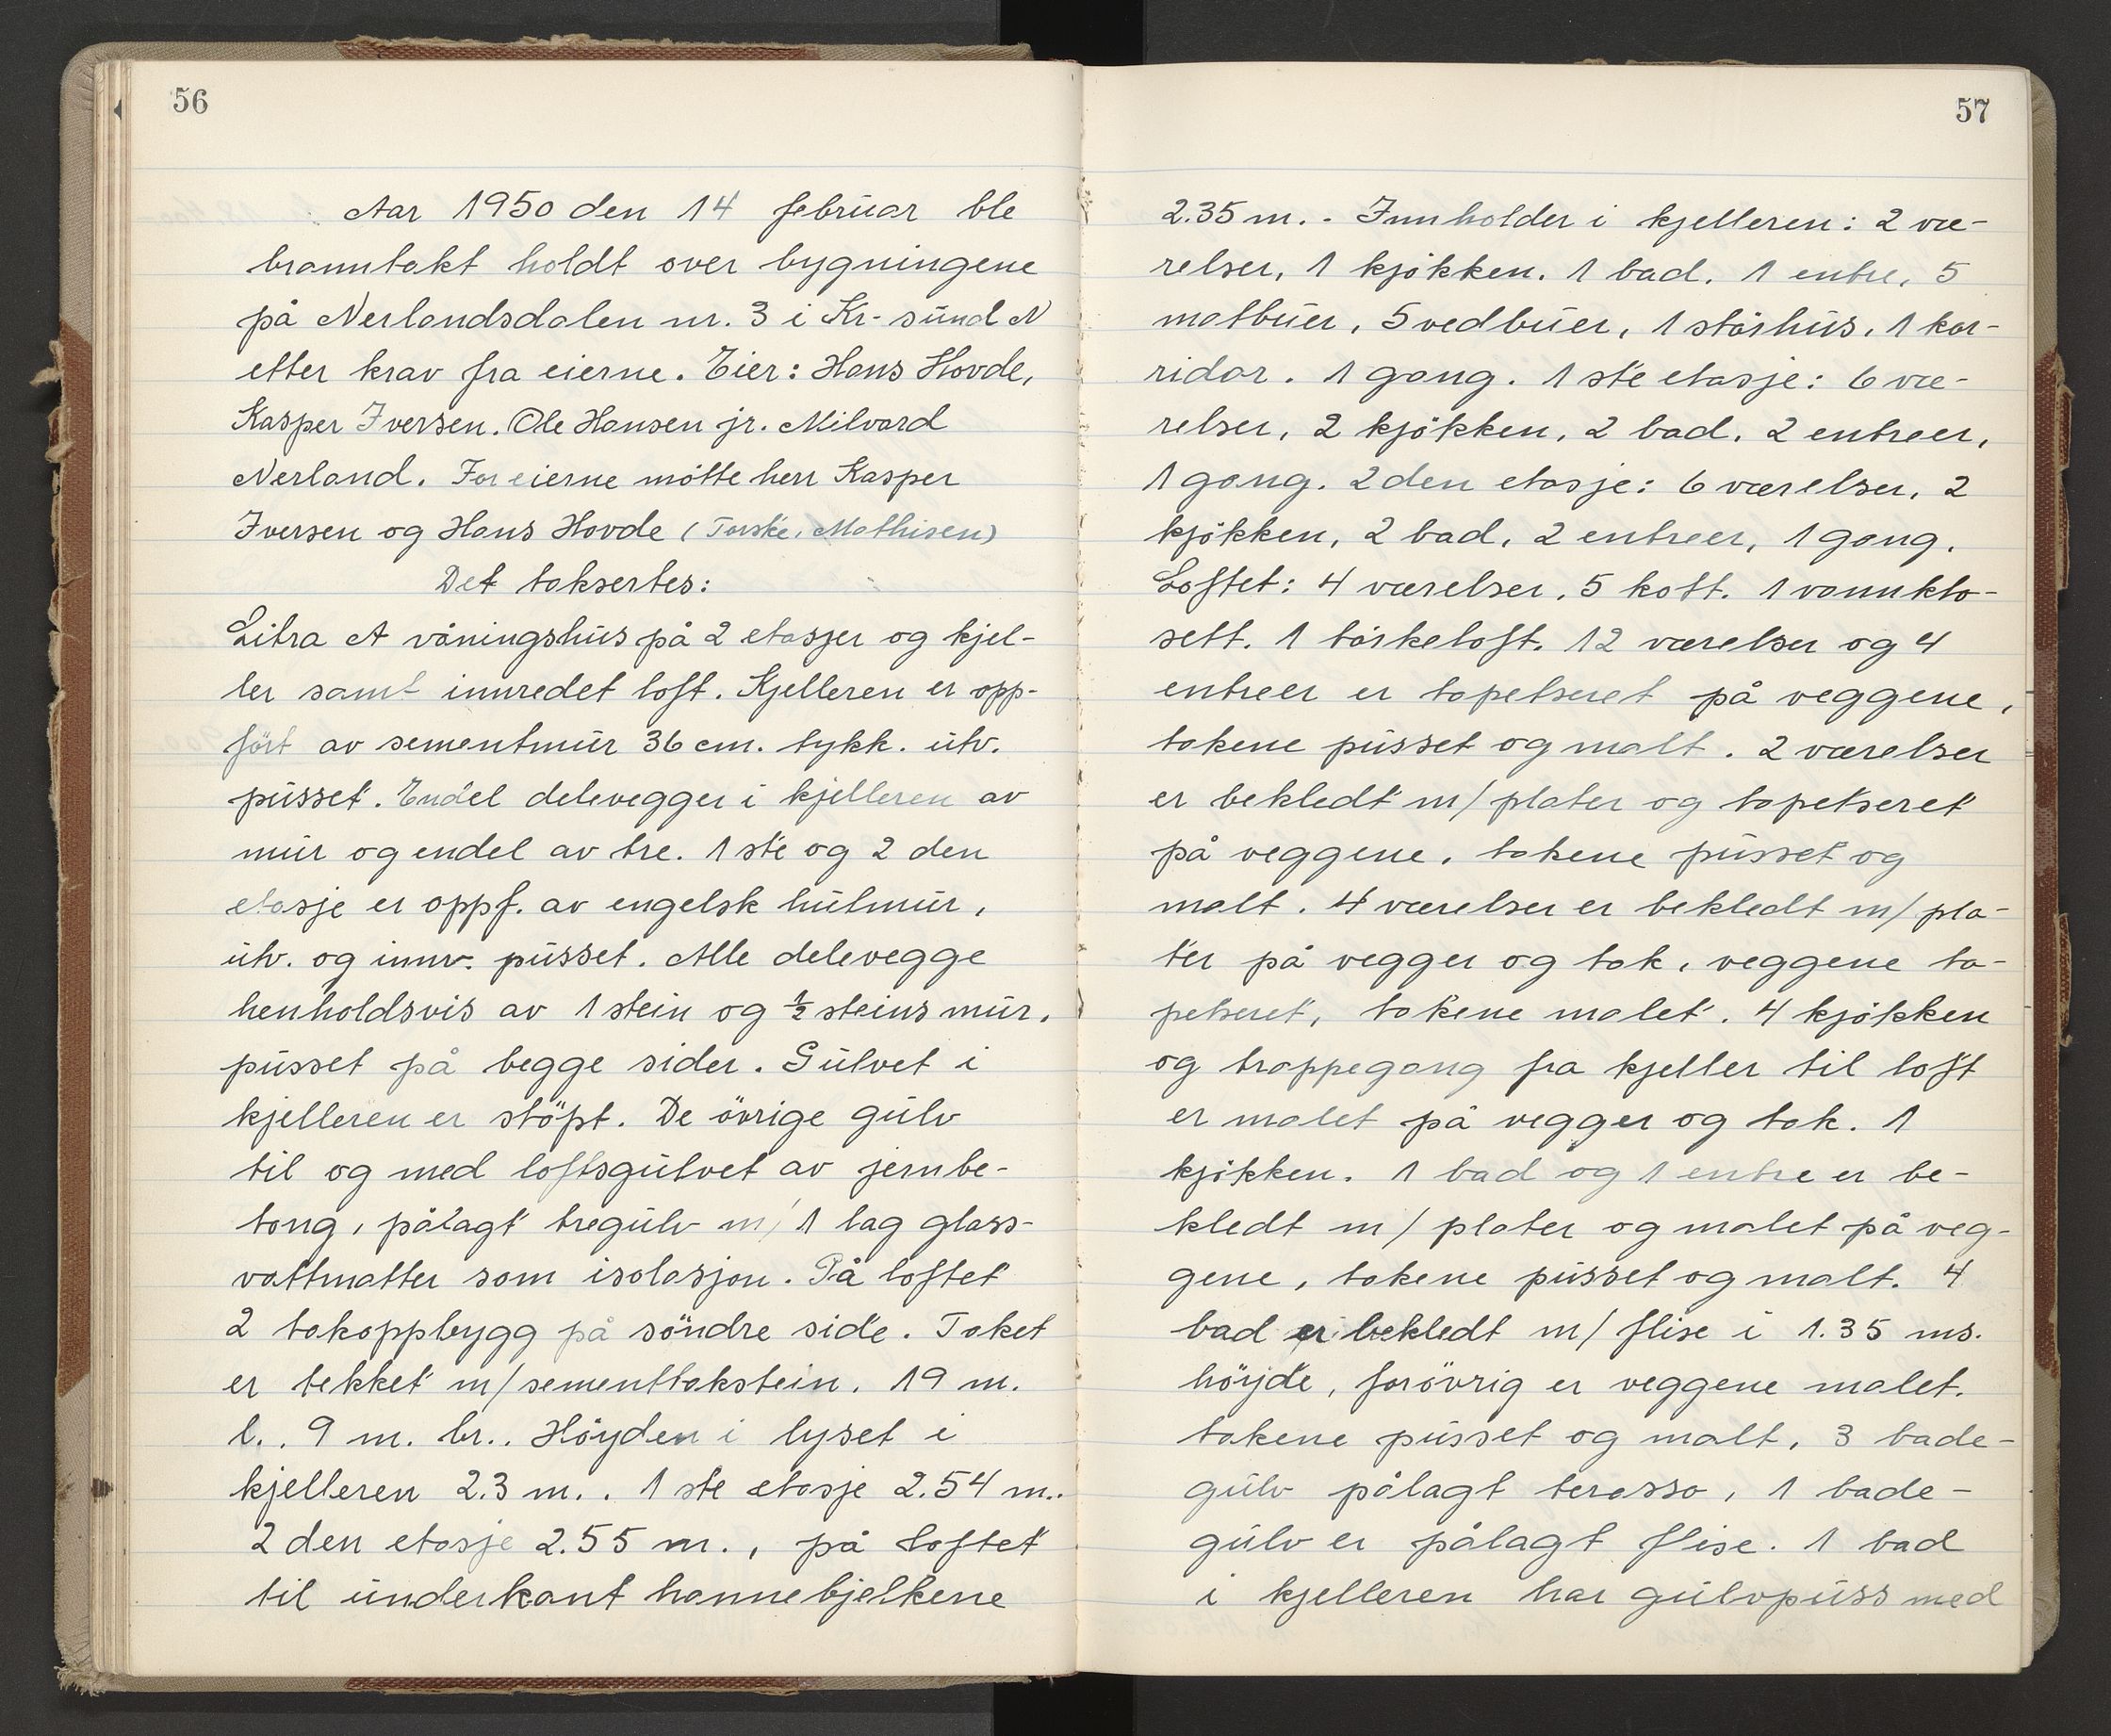 56
Aar 1950 den 14 februar ble
branntakt holdt over bygningene
på Nerlandsdalen nr. 3 i Kr-sund N
etter krav fra eierne. Eier: Hans Hovde,
Kasper Iversen. Ole Hansen jr. Milvard
Nerland. For eierne møtte herr Kasper
Iversen og Hans Hovde (Torske, Mathisen)
Det taksertes:
Litra A våningshus på 2 etasjer og kjel-
ler samt innredet loft. Kjelleren er opp-
ført av sementmur 36 cm. tykk. utv.
pusset. Endel delevegger i kjelleren av
mur og endel av tre. 1 ste og 2 den
etasje er oppf. av engelsk hulmur,
utv. og innv. pusset. Alle delevegge
henholdsvis av 1 stein og ½ steins mur,
pusset på begge sider. Gulvet i
kjelleren er stöpt. De övrige gulv
til og med loftsgulvet av jernbe-
tong, pålagt tregulv m/ 1 lag glass-
vattmatter som isolasjon. På loftet
2 takoppbygg på söndre side. Taket
er tekket m/sementtakstein. 19 m.
l.. 9 m. br.. Höyden i lyset i
kjelleren 2.3 m.. 1 ste etasje 2.54 m..
2 den etasje 2.55 m., på loftet
til underkant hannebjelkene
57
2.35 m. - Innholder i kjelleren: 2 væ-
relser, 1 kjökken. 1 bad. 1 entre, 5
matbuer, 5 vedbuer, 1 rörhus. 1 kor-
ridor. 1 gang. 1 ste etasje: 6 væ-
relser, 2 kjökken, 2 bad. 2 entreer,
1 gang. 2 den etasje: 6 værelser, 2
kjökken, 2 bad, 2 entreer, 1 gang.
Loftet: 4 værelser, 5 kott. 1 vannklo-
sett. 1 törkeloft. 12 værelser og 4
entreer er tapetseret på veggene,
takene pusset og malt. 2 værelser
er bekledt m/ plater og tapetseret
på veggene, takene pusset og
malt. 4 værelser er bekledt m/ pla-
ter på vegger og tak, veggene ta-
petseret, takene malet. 4 kjökken
og trappegang fra kjeller til loft
er malet på vegger og tak. 1
kjökken. 1 bad og 1 entre er be-
kledt m/ plater og malet på veg-
gene, takene pusset og malt. 4
bad er bekledt m/ flise i 1.35 ms.
höyde, forövrig er veggene malet.
takene pusset og malt, 3 bade-
gulv pålagt terasso, 1 bade-
gulv er pålagt flise. 1 bad
i kjelleren har gulvpuss med